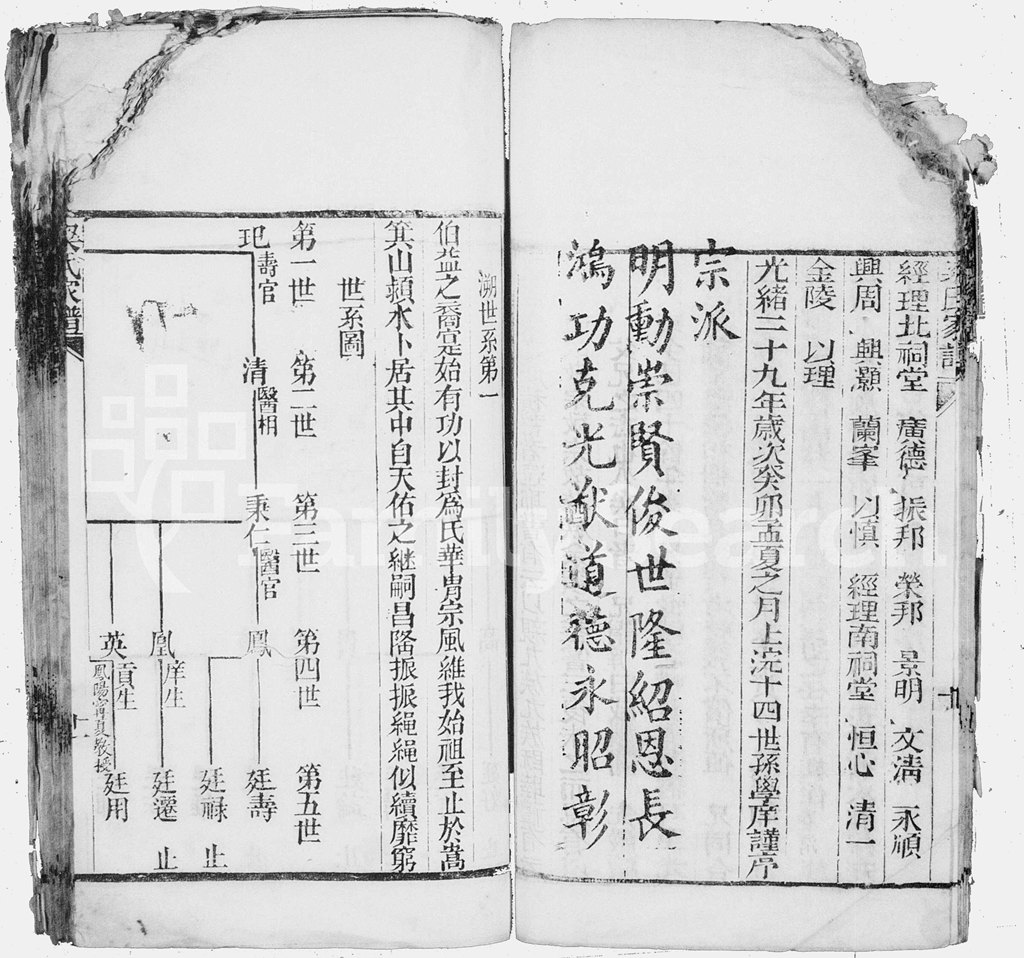 經理北祠堂 廣德 振邦 榮邦 景明 文清 永順
興周 興顯 蘭峯 以慎 經理南祠堂 恒心 清一
金陵 以理
光緒二十九年歲次癸卯孟夏之月上浣十四世孫學庠謹序
宗派
明動崇賢俊世隆紹恩長
鴻功克光猷道德永昭彰
溯世系第一
伯益之裔寔始有功以封爲氏華胄宗風維我始祖至止於嵩
箕山潁水卜居其中自天佑之継嗣昌隆振振繩繩似續靡窮
世系圖
第一世 第二世 第三世 第四世 第五世
玘壽官 清醫相 秉仁醫官 鳳 廷壽
廷祿 止
凰庠生 廷遷 止
英貢生鳳陽甯夏教授 廷用
氏家譜 十一
FamilySearch